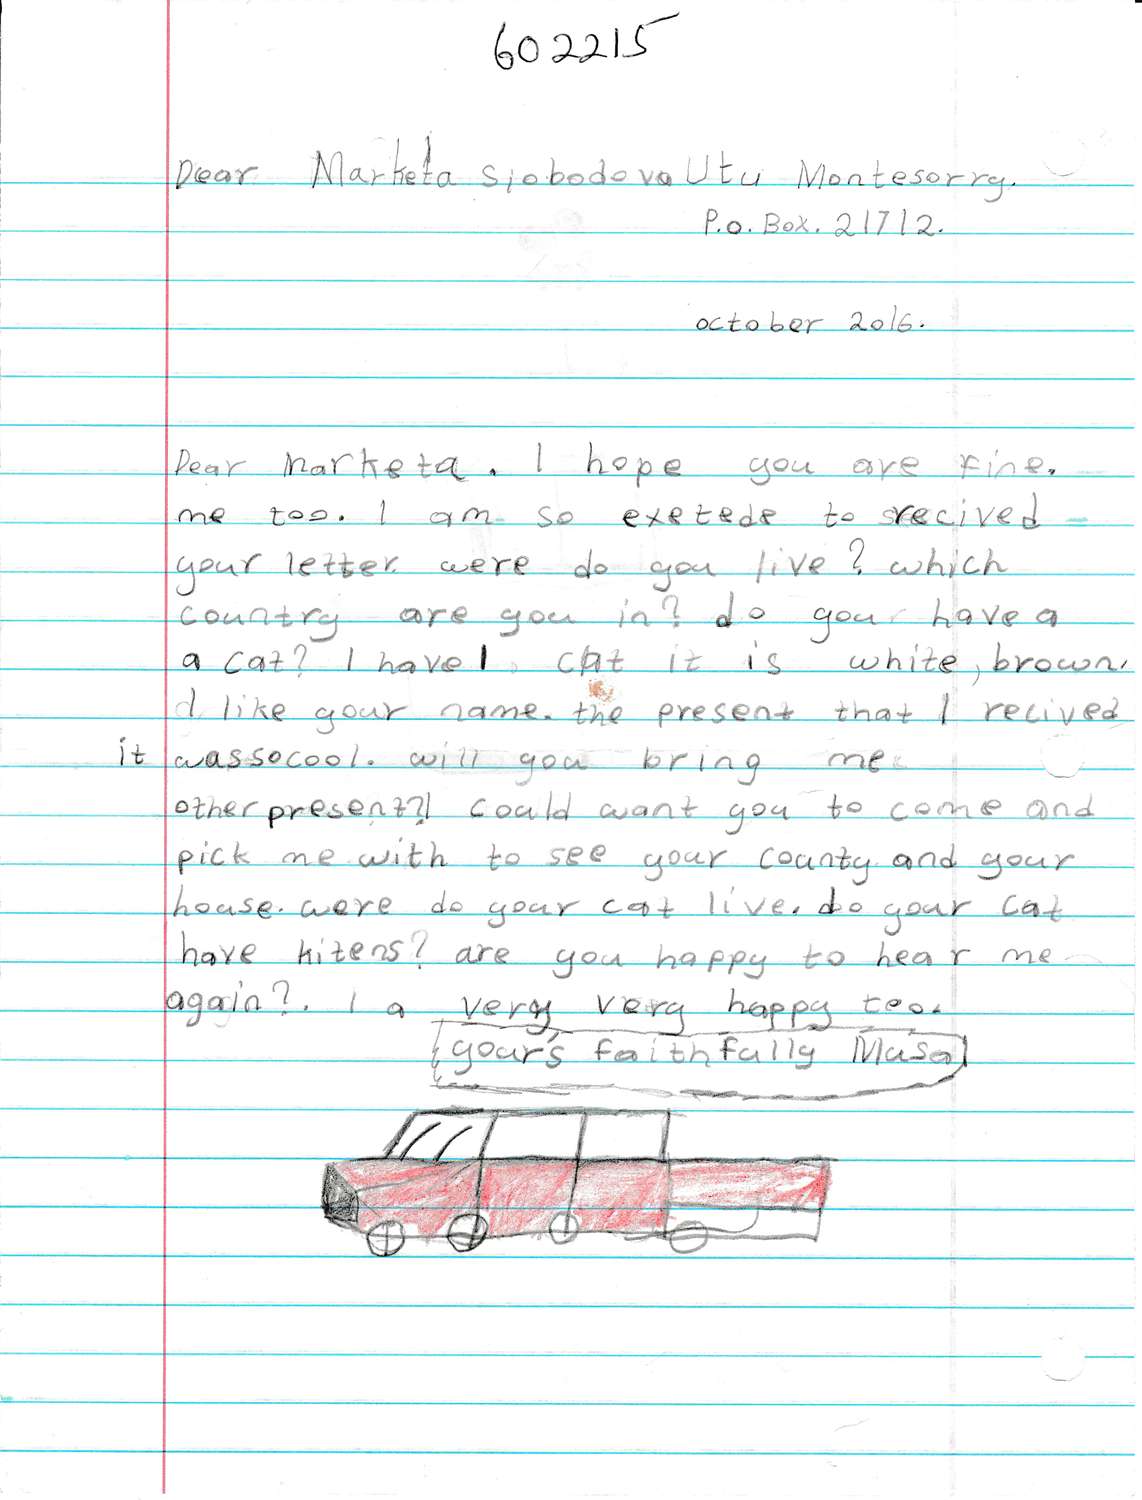 602215
Dear Marketa Sjobodova Utu Montesorry.
P.o. Box. 21712.
october 2016.
Dear marketa. I hope you are fine.
me too. I am so exetede to srecived
your letter. were do you live? which
country are you in? do you have a
a cat? I have 1 cat it is white, brown.
I like your name. the present that I recived
it was so cool. will you bring me
other present? I could want you to come and
pick me with to see your county and your
house. were do your cat live. do your cat
have kitens? are you happy to hear me
again?. I a very very happy too.
your's faithfully Musa